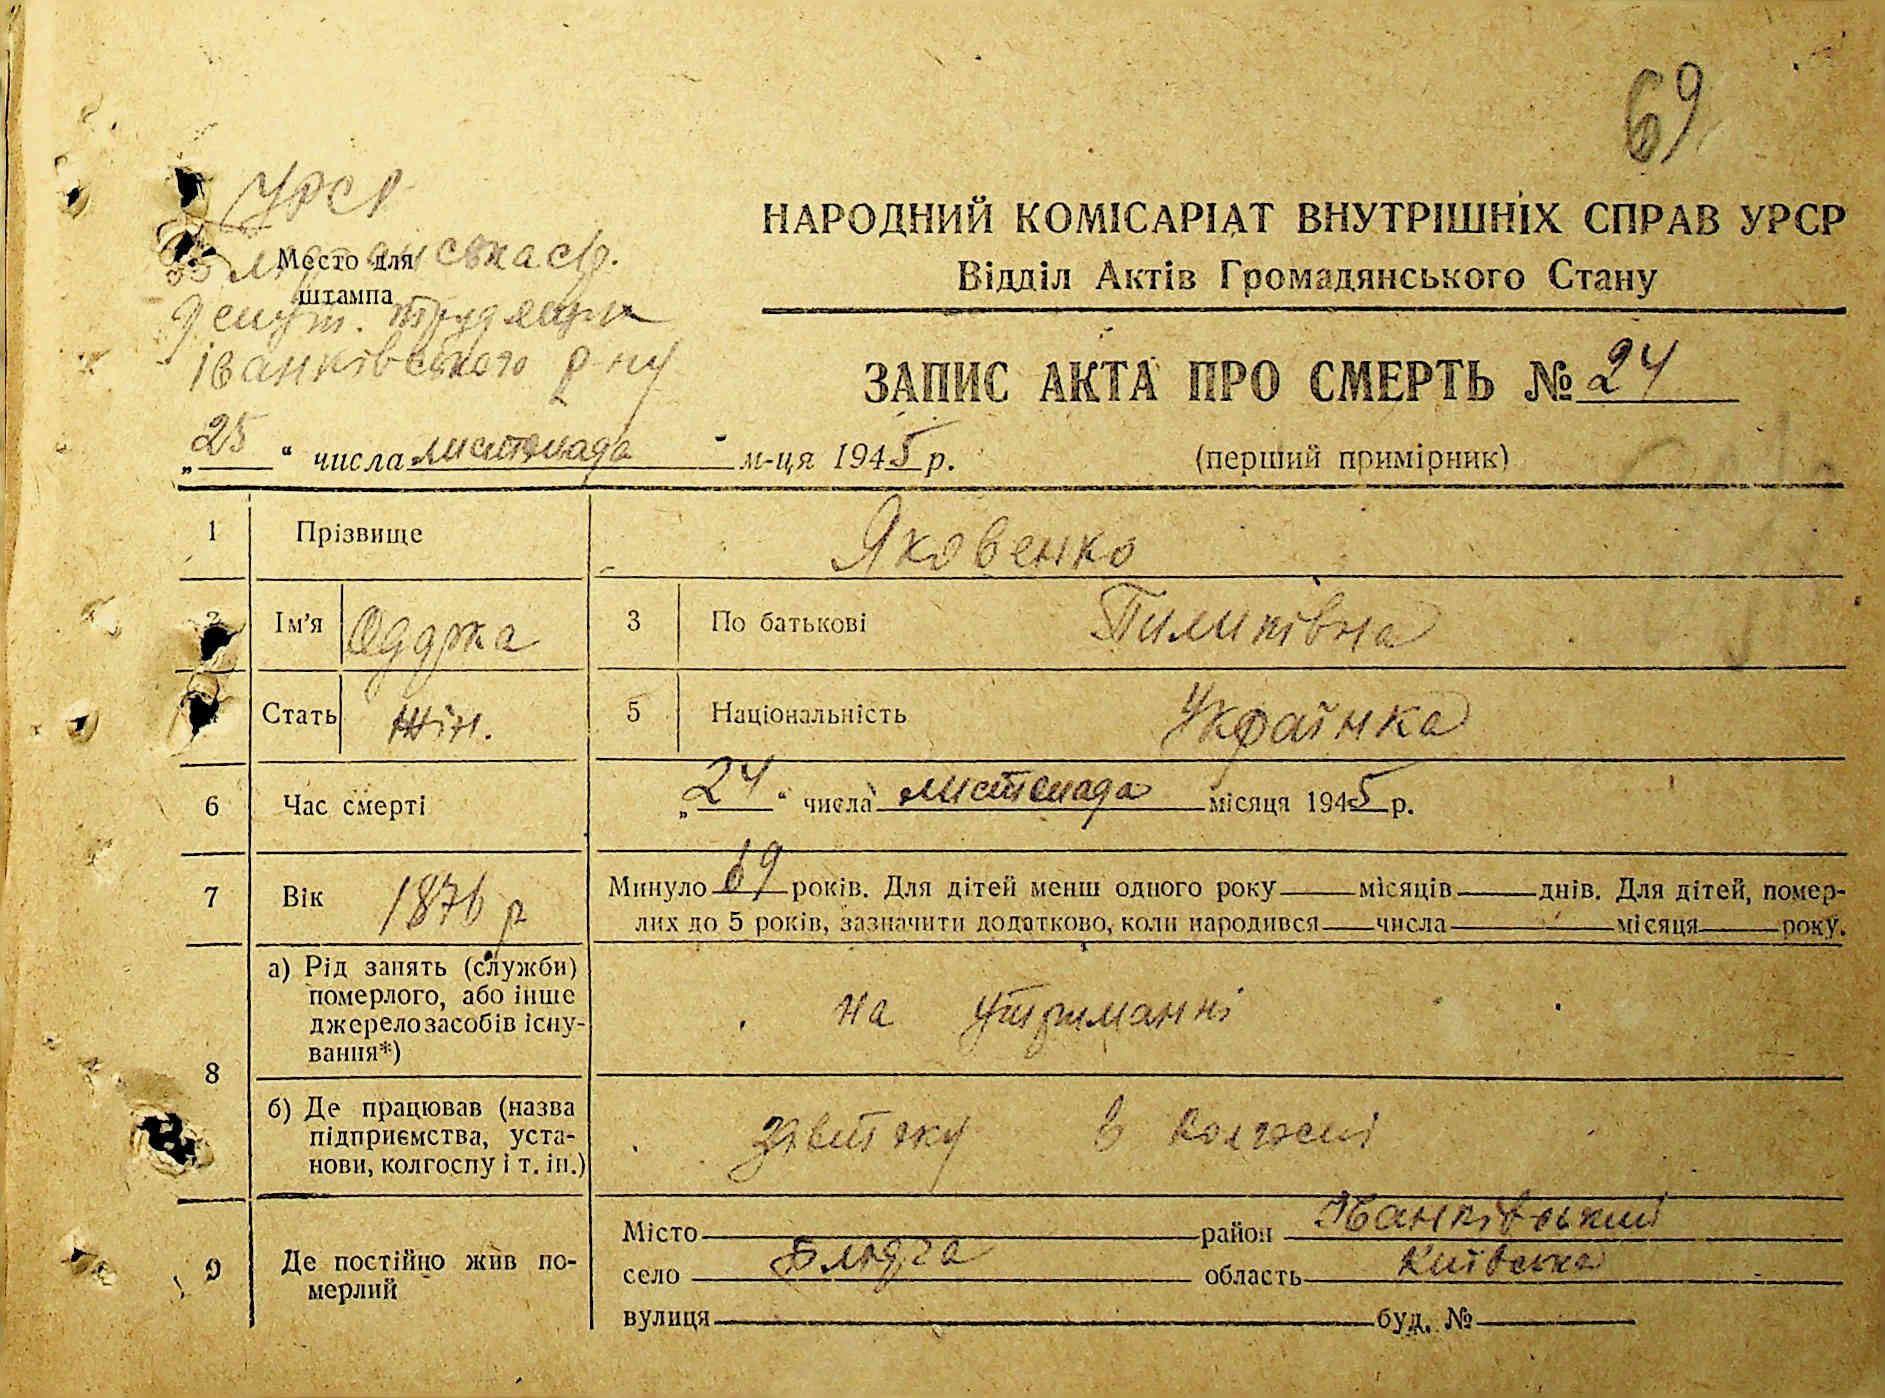 69
УРСР
Место для
штампа
депут. трудящих
Іванківського р-ну
НАРОДНИЙ КОМІСАРІАТ ВНУТРІШНІХ СПРАВ УРСР
Відділ Актів Громадянського Стану
ЗАПИС АКТА ПРО СМЕРТЬ № 24
„25“ числа листопада м-ця 1945 р.
(перший примірник)
1 Прізвище Яковенко
Ім'я Одарка 3 По батькові Пилипівна
Стать жін. 5 Національність Українка
6 Час смерті „24“ числа листопада місяця 1945 р.
7 Вік 1876 р Минуло 69 років. Для дітей менш одного року місяців днів. Для дітей, помер-
лих до 5 років, зазначити додатково, коли народився числа місяця року.
8 а) Рід занять (служби)
померлого, або інше
джерело засобів існу-
вання*)
на утриманні
б) Де працював (назва
підприємства, уста-
нови, колгоспу і т. ін.)
в
9 Де постійно жив по-
мерлий
Місто район Іванківський
село область Київська
вулиця буд. №